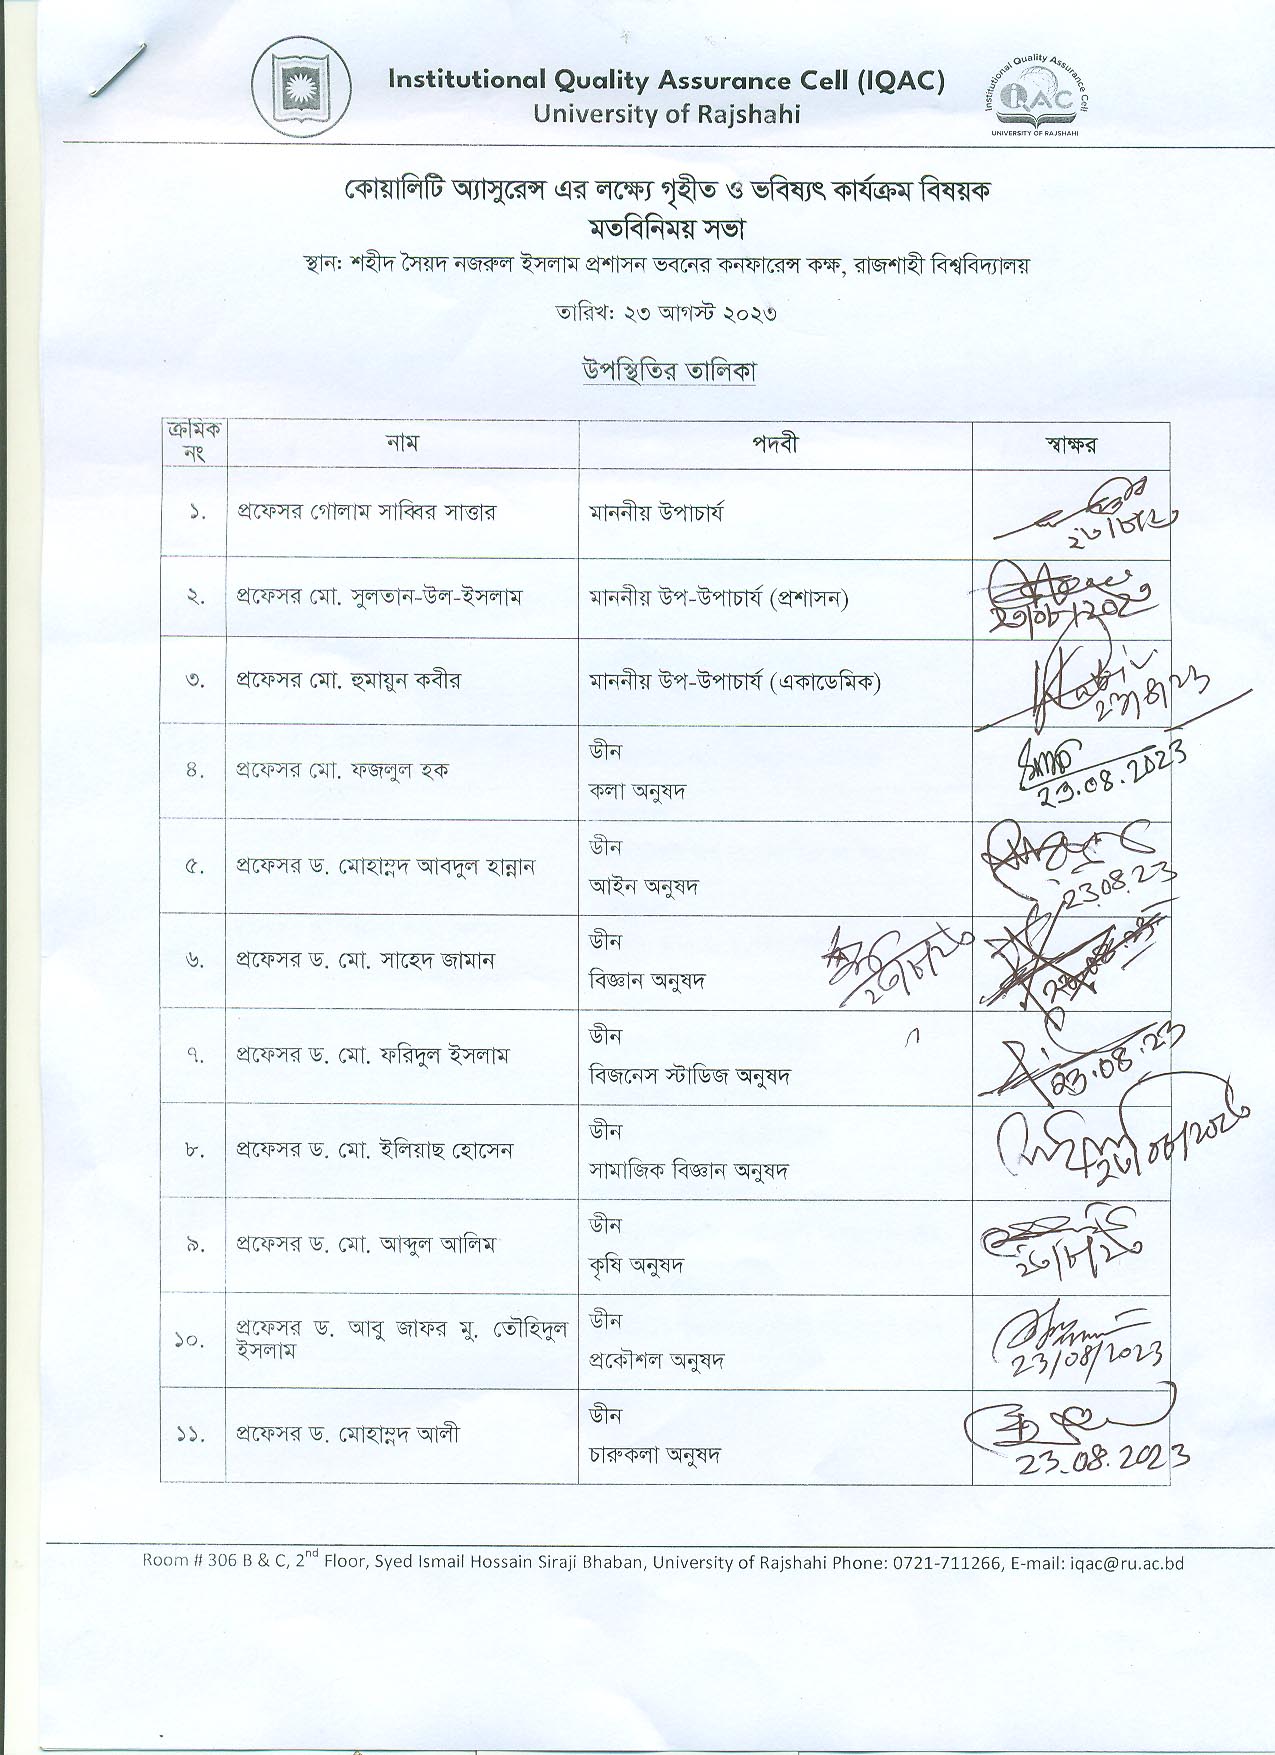 Institutional Quality Assurance Cell (IQAC)
University of Rajshahi
Institutional Quality Assurance Cell
IQAC
UNIVERSITY OF RAJSHAHI
কোয়ালিটি অ্যাসুরেন্স এর লক্ষ্যে গৃহীত ও ভবিষ্যৎ কার্যক্রম বিষয়ক
মতবিনিময় সভা
স্থান: শহীদ সৈয়দ নজরুল ইসলাম প্রশাসন ভবনের কনফারেন্স কক্ষ, রাজশাহী বিশ্ববিদ্যালয়
তারিখ: ২৩ আগস্ট ২০২৩
উপস্থিতির তালিকা
ক্রমিক নং নাম পদবী স্বাক্ষর
১. প্রফেসর গোলাম সাব্বির সাত্তার মাননীয় উপাচার্য ২৩/৮/২৩
২. প্রফেসর মো. সুলতান-উল-ইসলাম মাননীয় উপ-উপাচার্য (প্রশাসন) ২৩/০৮/২০২৩
৩. প্রফেসর মো. হুমায়ুন কবীর মাননীয় উপ-উপাচার্য (একাডেমিক) 23/8/23
৪. প্রফেসর মো. ফজলুল হক ডীন
কলা অনুষদ 23.08.2023
৫. প্রফেসর ড. মোহাম্মদ আবদুল হান্নান ডীন
আইন অনুষদ 23.08.23
৬. প্রফেসর ড. মো. সাহেদ জামান ডীন
বিজ্ঞান অনুষদ ২৩/৮/২৩
৭. প্রফেসর ড. মো. ফরিদুল ইসলাম ডীন
বিজনেস স্টাডিজ অনুষদ 23.08.23
৮. প্রফেসর ড. মো. ইলিয়াছ হোসেন ডীন
সামাজিক বিজ্ঞান অনুষদ ২৩/০৮/২০২৩
৯. প্রফেসর ড. মো. আব্দুল আলিম ডীন
কৃষি অনুষদ ২৩/৮/২৩
১০. প্রফেসর ড. আবু জাফর মু. তৌহিদুল
ইসলাম ডীন
প্রকৌশল অনুষদ 23/08/2023
১১. প্রফেসর ড. মোহাম্মদ আলী ডীন
চারুকলা অনুষদ 23.08.2023
Room # 306 B & C, 2nd Floor, Syed Ismail Hossain Siraji Bhaban, University of Rajshahi Phone: 0721-711266, E-mail: iqac@ru.ac.bd